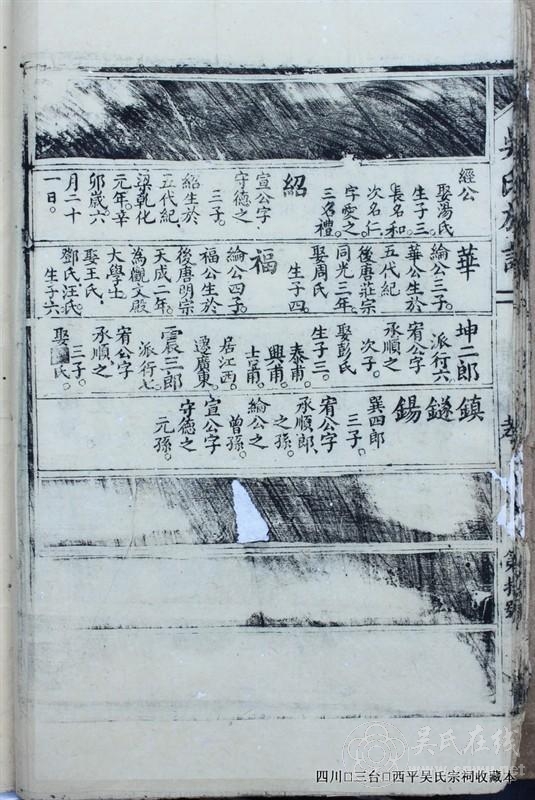 吳氏族譜
經公
娶湯氏
生子三。
長名和。
次名仁
字愛之
三名禮。
紹
宣公字
守德之
三子。
紹生於
五代紀、
梁乾化
元年。辛
卯歲六
月二十
一日。
華
綸公三子。
華公生於
五代紀
後唐莊宗
同光三年。
娶周氏
生子四。
福
綸公四子。
福公生於
後唐明宗
天成二年。
為觀文殿
大學士
娶王氏、
鄧氏汪氏
生子六
坤二郎
派行六
宥公字
承順之
次子。
娶彭氏
生子三。
泰甫。
興甫。
吉甫。
居江西。
遷廣東。
震三郎
派行七
宥公字
承順之
三子。
娶氏。
鎮
鐩
錫
巽四郎
三子。
宥公字
承順郎、
之孫。
綸公之
曾孫。
宣公字
守德之
元孫。
四川□三台□西平吴氏宗祠收藏本
吴氏在线